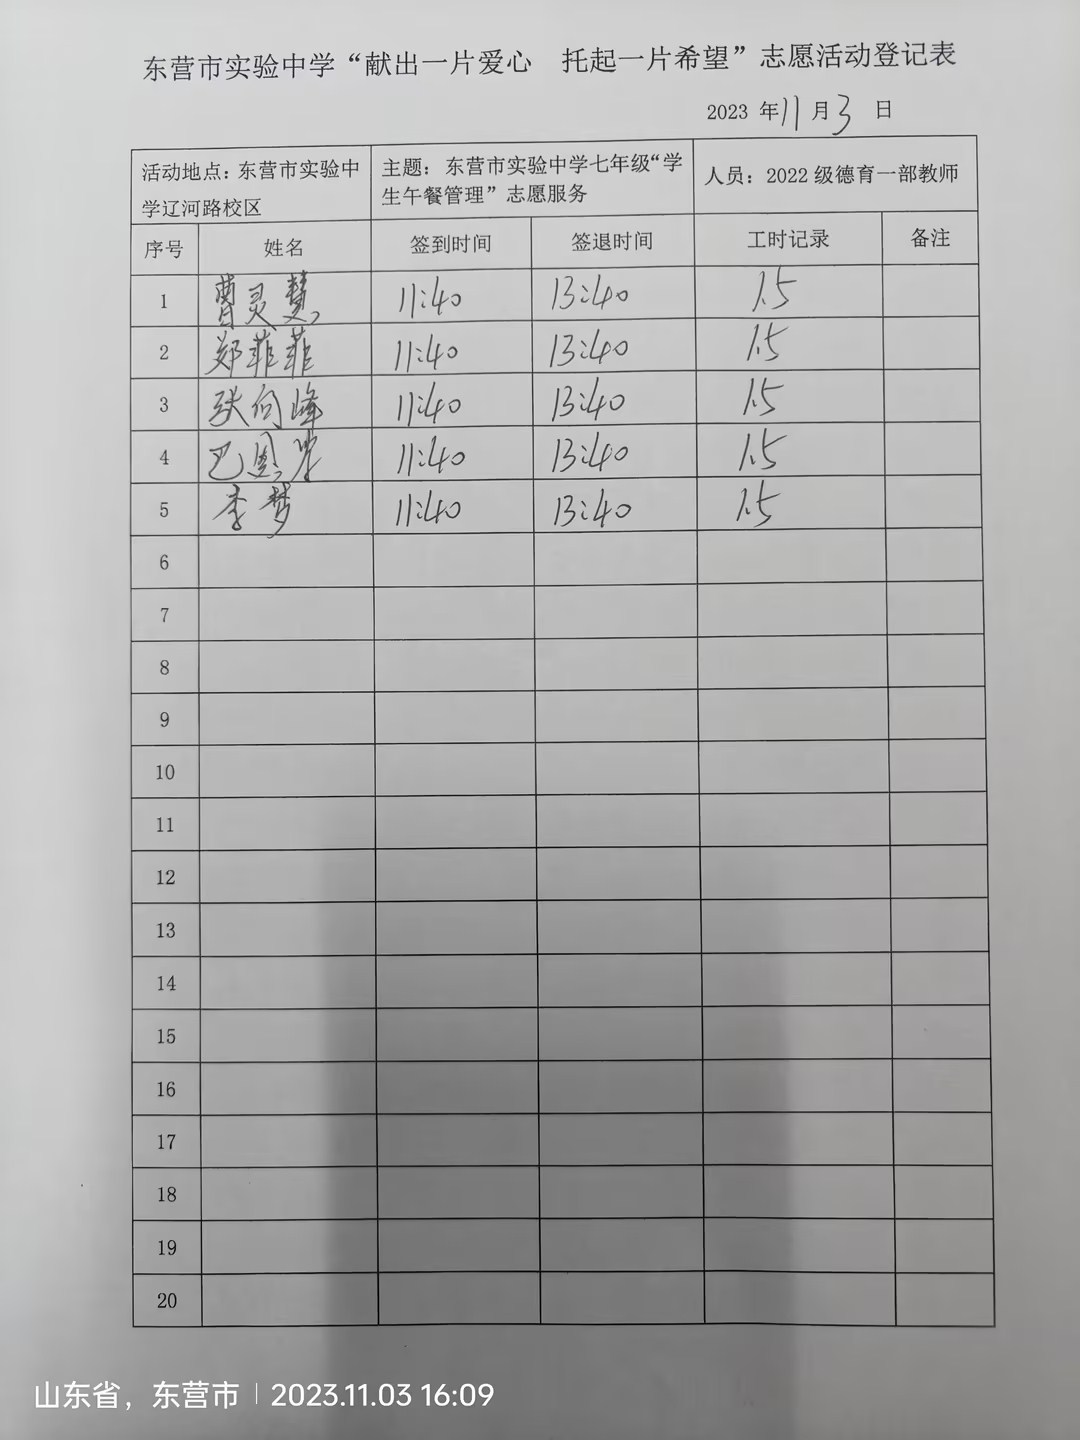 东营市实验中学“献出一片爱心 托起一片希望”志愿活动登记表
2023 年 11 月 3 日
活动地点：东营市实验中学辽河路校区 主题：东营市实验中学七年级“学生午餐管理”志愿服务 人员：2022 级德育一部教师
序号 姓名 签到时间 签退时间 工时记录 备注
1 曹灵慧 11:40 13:40 1.5
2 郑菲菲 11:40 13:40 1.5
3 张向峰 11:40 13:40 1.5
4 巴 11:40 13:40 1.5
5 李梦 11:40 13:40 1.5
6
7
8
9
10
11
12
13
14
15
16
17
18
19
20
山东省，东营市 | 2023.11.03 16:09